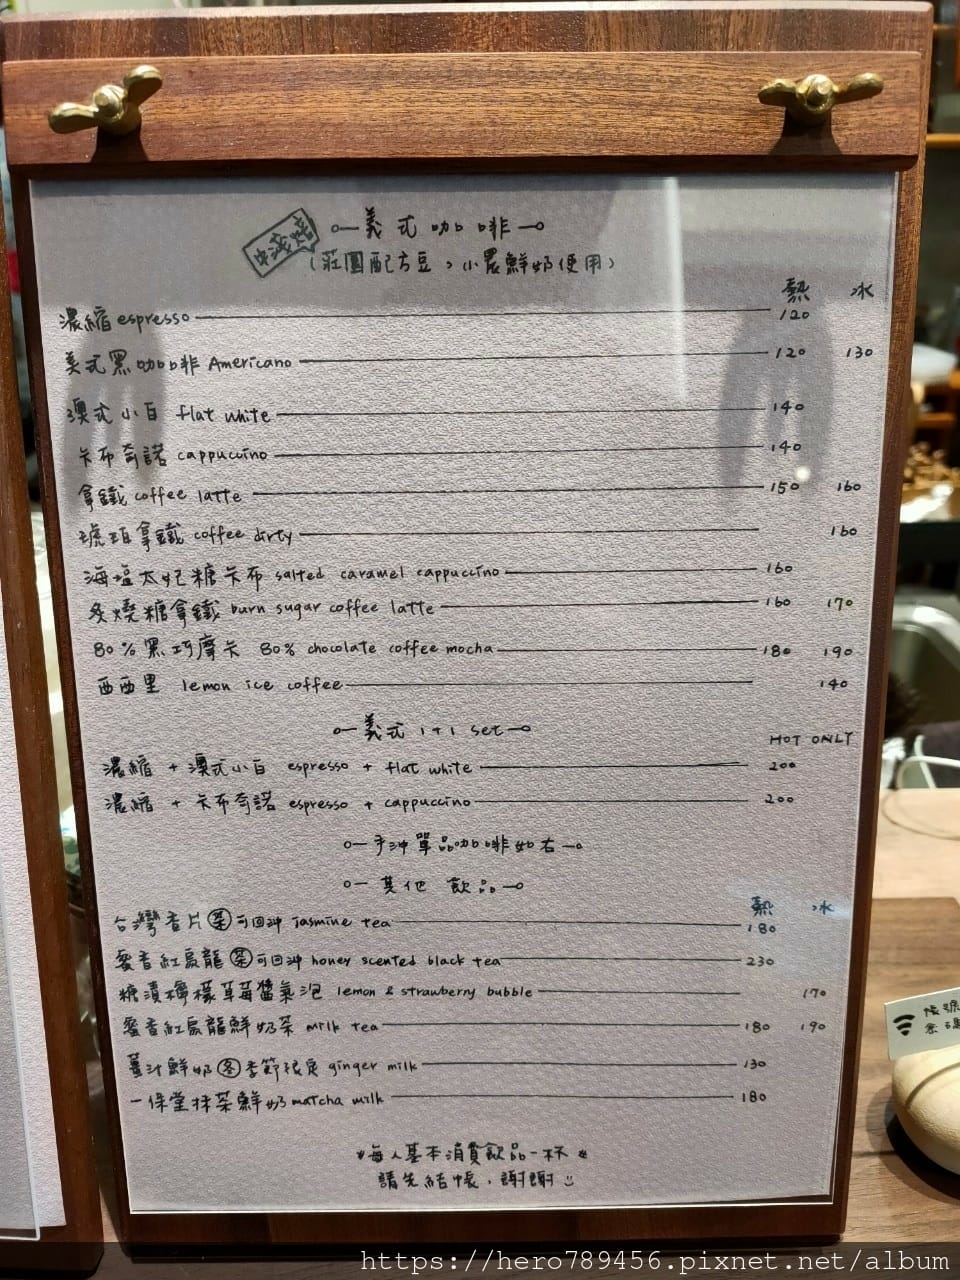 中淺焙
義式咖啡
(莊園配方豆，小農鮮奶使用)
熱 冰
濃縮 espresso 120
美式黑咖啡 Americano 120 130
澳式小白 flat white 140
卡布奇諾 cappuccino 140
拿鐵 coffee latte 150 160
琥珀拿鐵 coffee dirty 160
海塩太妃糖卡布 salted caramel cappuccino 160
炙燒糖拿鐵 burn sugar coffee latte 160 170
80%黑巧摩卡 80% chocolate coffee mocha 180 190
西西里 lemon ice coffee 140
義式 1+1 set
HOT ONLY
濃縮 + 澳式小白 espresso + flat white 200
濃縮 + 卡布奇諾 espresso + cappuccino 200
手沖單品咖啡如右
其他 飲品
熱 冰
台灣香片茶可回沖 jasmine tea 180
蜜香紅烏龍茶可回沖 honey scented black tea 230
糖漬檸檬草莓醬氣泡 lemon & strawberry bubble 170
蜜香紅烏龍鮮奶茶 milk tea 180 190
薑汁鮮奶冬季節限定 ginger milk 130
一保堂抹茶鮮奶 matcha milk 180
*每人基本消費飲品一杯*
請先結帳，謝謝
帳號
密碼
https://hero789456.pixnet.net/album